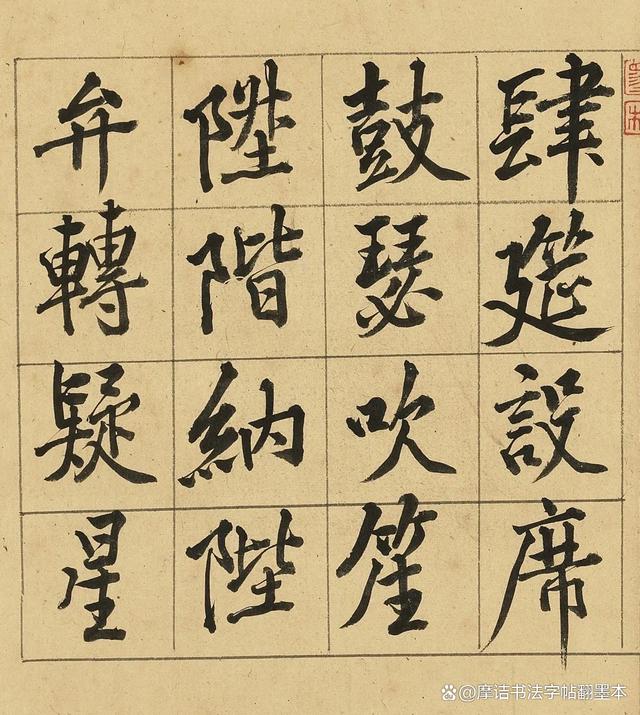 肆筵設席
鼓瑟吹笙
陞階納陛
弁轉疑星
@摩诘书法字帖翻墨本